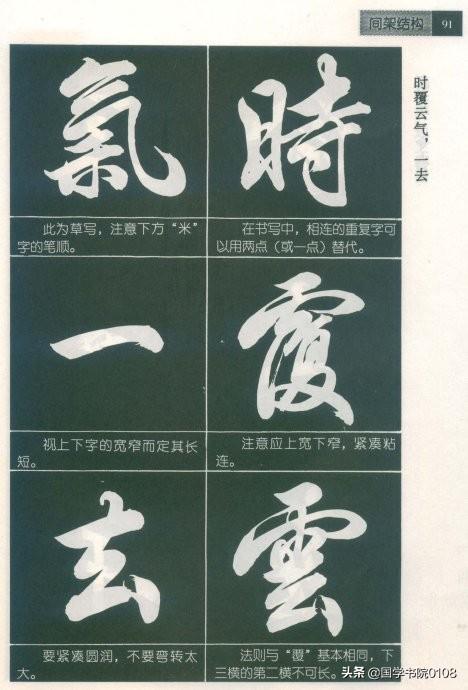 间架结构 91
时覆云气，一去
時
在书写中，相连的重复字可
以用两点（或一点）替代。
覆
注意应上宽下窄，紧凑粘
连。
雲
法则与“覆”基本相同，下
三横的第二横不可长。
氣
此为草写，注意下方“米”
字的笔顺。
一
视上下字的宽窄而定其长
短。
去
要紧凑圆润，不要弯转太
大。
头条 @国学书院0108